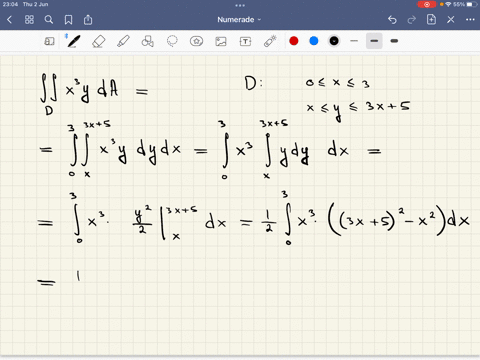 23:04 Thu 2 Jun 55%
Numerade
∬_D x³y dA = D: 0 ≤ x ≤ 3
x ≤ y ≤ 3x+5
= ∫₀³ ∫ₓ^{3x+5} x³y dy dx = ∫₀³ x³ ∫ₓ^{3x+5} y dy dx =
= ∫₀³ x³ · y²/2 |ₓ^{3x+5} dx = 1/2 ∫₀³ x³ · ((3x+5)² − x²) dx
=